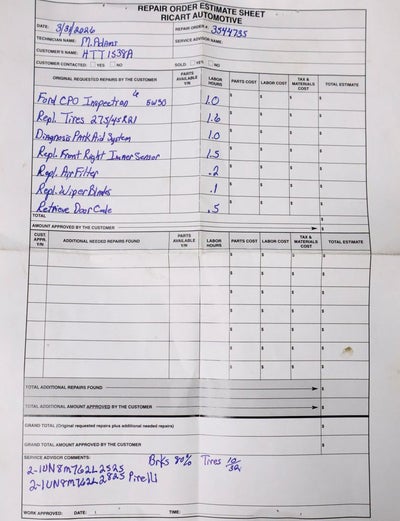 REPAIR ORDER ESTIMATE SHEET
RICART AUTOMOTIVE
DATE: 3/31/2026 REPAIR ORDER #: 3544735
TECHNICIAN NAME: M. Adams SERVICE ADVISOR NAME:
CUSTOMER'S NAME: HTT1538A
CUSTOMER CONTACTED: YES NO SOLD YES NO
ORIGINAL REQUESTED REPAIRS BY THE CUSTOMER PARTS AVAILABLE Y/N LABOR HOURS PARTS COST LABOR COST TAX & MATERIALS COST TOTAL ESTIMATE
Ford CPO Inspection 5W30 1.0 $ $ $ $
Repl. Tires 275/45R21 1.6 $ $ $ $
Diagnosis Park Aid System 1.0 $ $ $ $
Repl. Front Right Inner Sensor 1.5 $ $ $ $
Repl. Air Filter .2 $ $ $ $
Repl. Wiper Blades .1 $ $ $ $
Retrieve Door Code .5 $ $ $ $
TOTAL $
AMOUNT APPROVED BY THE CUSTOMER $
CUST. APPR. Y/N ADDITIONAL NEEDED REPAIRS FOUND PARTS AVAILABLE Y/N LABOR HOURS PARTS COST LABOR COST TAX & MATERIALS COST TOTAL ESTIMATE
$ $ $ $
$ $ $ $
$ $ $ $
$ $ $ $
$ $ $ $
$ $ $ $
$ $ $ $
TOTAL ADDITIONAL REPAIRS FOUND $
TOTAL ADDITIONAL AMOUNT APPROVED BY THE CUSTOMER $
GRAND TOTAL (Original requested repairs plus additional needed repairs) $
GRAND TOTAL AMOUNT APPROVED BY THE CUSTOMER $
SERVICE ADVISOR COMMENTS: Brks 80% Tires 10/32
2-1UN8M7G2L2525
2-1UN8M7G2L2825 Pirelli
WORK APPROVED: DATE: TIME: